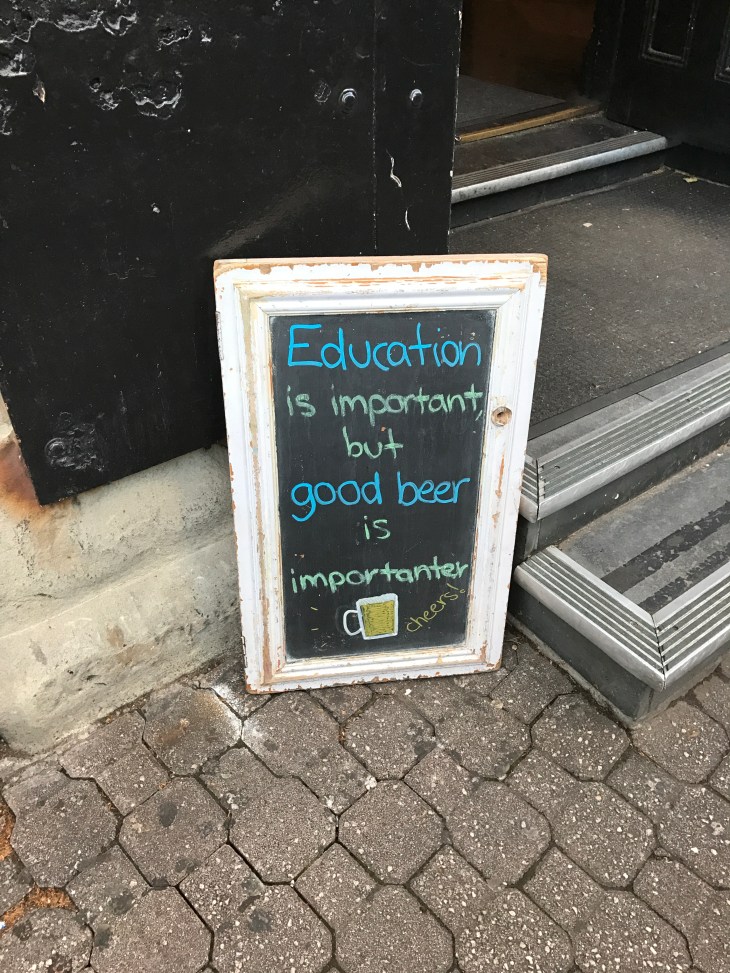 Education
is important,
but
good beer
is
importanter
cheers!